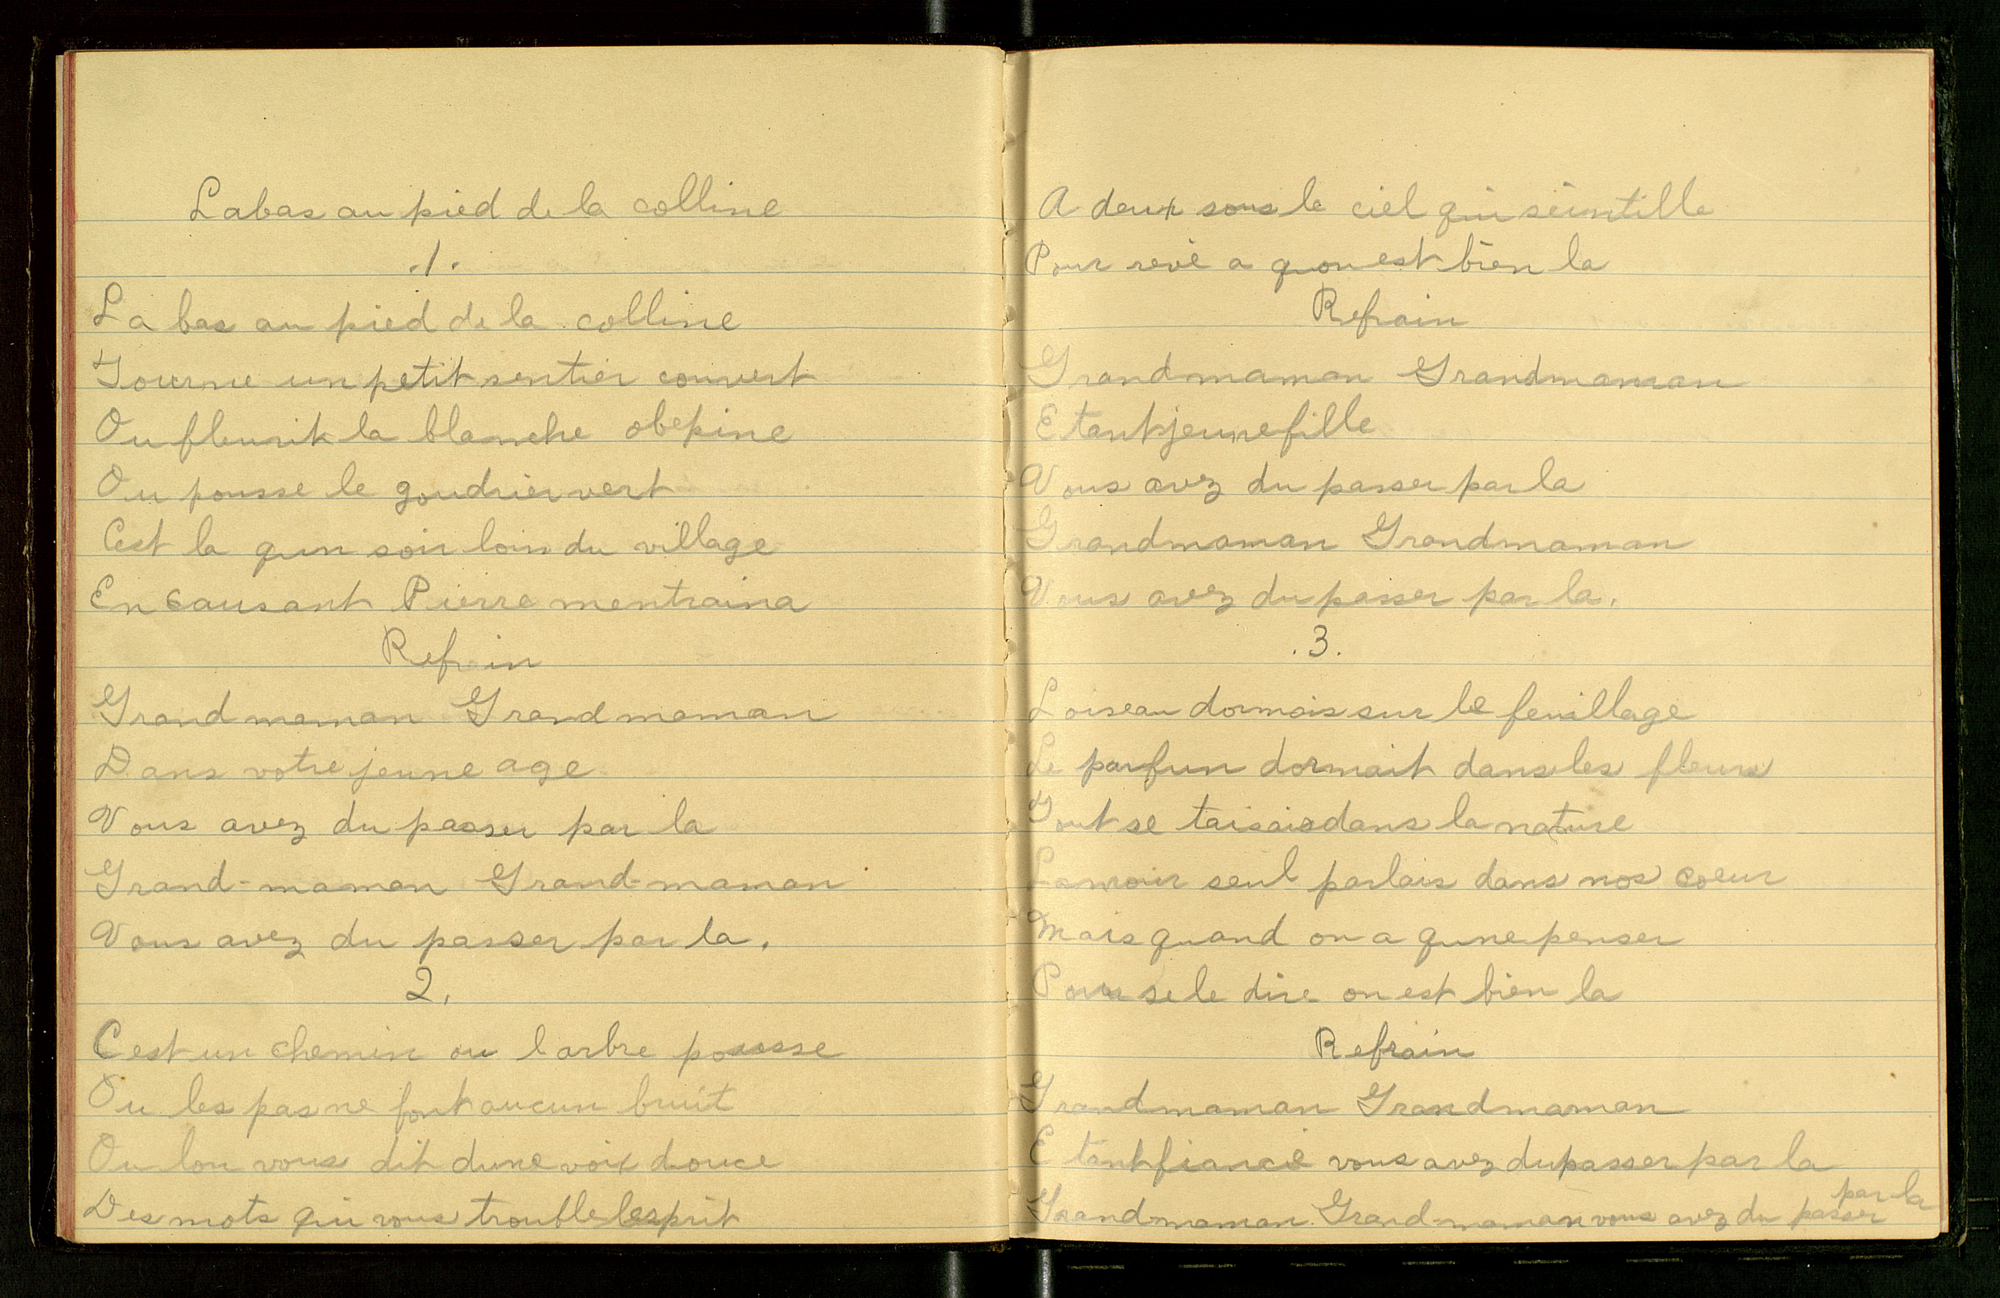 Labas au pied de la colline
.1.
La bas au pied de la colline
Tourne un petit sentier couvert
Ou fleurit la blanche obepine
Ou pousse le goudrier vert
Cest la qun soir loin du village
En causant Pierre mentraina
Refrain
Grand maman Grand maman
Dans votre jeune age
Vous avez du passer par la
Grand-maman Grand-maman
Vous avez du passer par la.
2.
Cest un chemin ou larbre pousse
Ou les pas ne font aucun bruit
Ou lon vous dit dune voix douce
Des mots qui vous trouble lesprit
A deux sous le ciel qui séintille
Pour revé a quon est bien la
Refrain
Grandmaman Grandmaman
Etant jeune fille
Vous avez du passer par la
Grandmaman Grandmaman
Vous avez du passer par la.
.3.
Loiseau dormais sur le feuillage
Le parfun dormait dans les fleurs
Tout se taisais dans la nature
Lamour seul parlais dans nos coeur
Mais quand on a qune penser
Pour se le dire on est bien la
Refrain
Grandmaman Grandmaman
Etant fiancié vous avez du passer par la
Grand-maman Grand-maman vous avez du passer par la